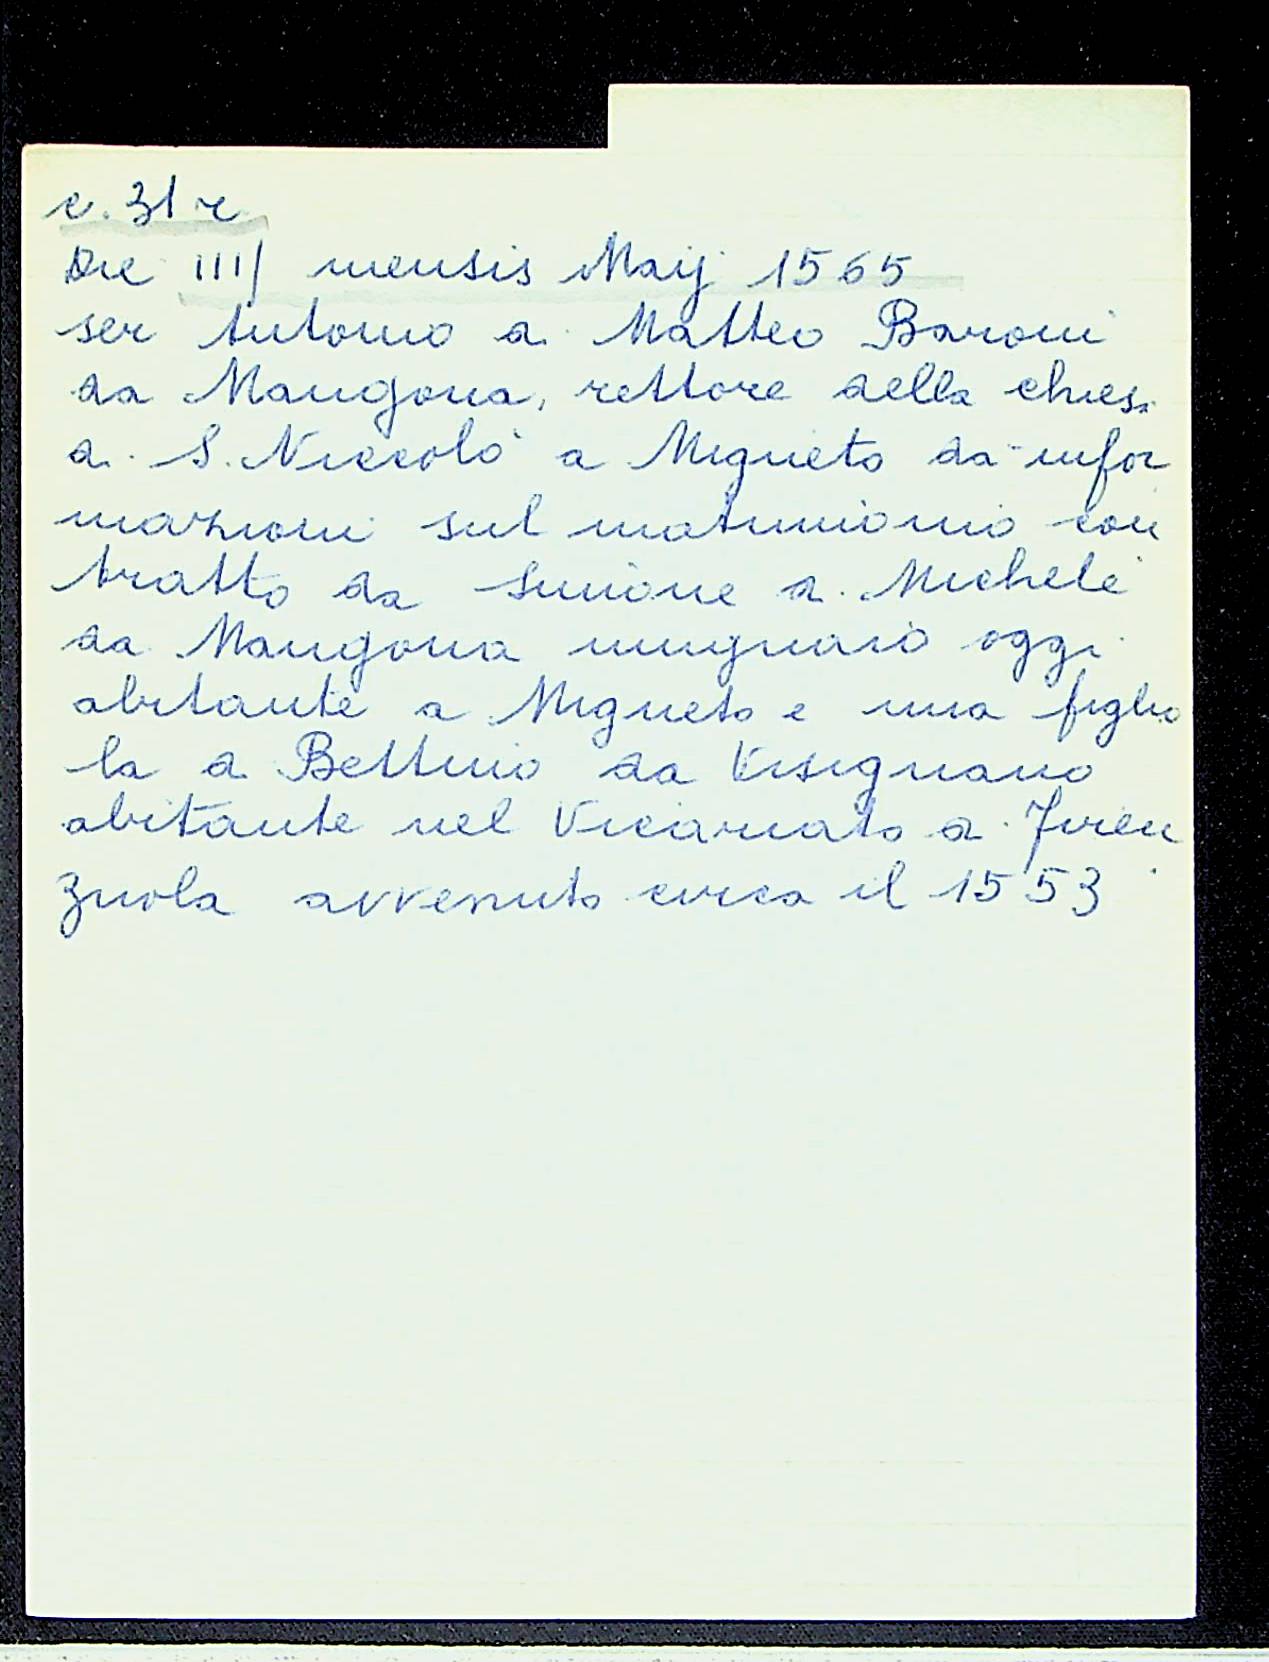 c. 31 r.
Die IIII mensis Maij 1565
ser Antonio di Matteo Baroni
da Mangona, rettore della chiesa
di S. Niccolò a Migneto dà infor
mazioni sul matrimonio con
tratto da Simone di Michele
da Mangona mugnaio oggi
abitante a Migneto e una figlio
la di Bettino da Visignano
abitante nel Vicariato di Firen
zuola avvenuto circa il 1553